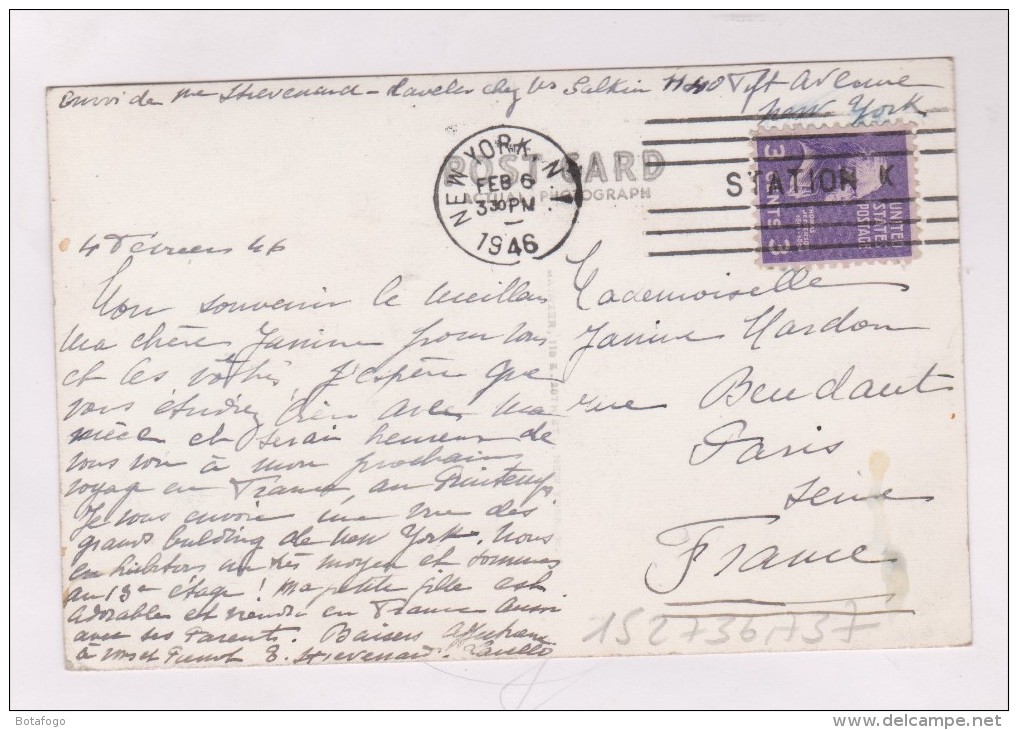 Envoi de Me Stievenard - chez Mrs Salkin 1140 Vift Avenue
New York
POST CARD
ACTUAL PHOTOGRAPH
NEW YORK, N.Y.
FEB 6
3 30 PM
1946
STATION K
UNITED STATES POSTAGE
3 CENTS 3
4 46
Mon souvenir le meilleur
ma chère Janine pour vous
et les vôtres, J'espère que
vous étudiez bien avec ma
nièce et serai heureuse de
vous voir à mon prochain
voyage en France, au Printemps
Je vous envoie une vue des
grands building de New York. Nous
en habitons un très moyen et sommes
au 13e étage ! Ma petite fille est
adorable et viendra en France aussi
avec ses Parents. Baisers affectueux
à vous et E. Stievenard
Mademoiselle
Janine Mardon
rue Beudant
Paris
Seine
France
152736737
Botafogo
www.delcampe.net